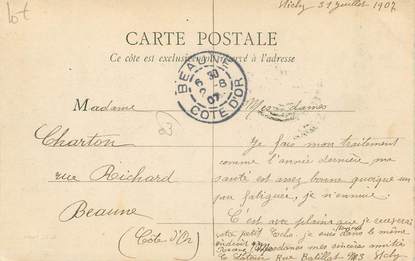 lot
Vichy 31 juillet 1907
CARTE POSTALE
Ce côté est exclusivement réservé à l'adresse
BEAUNE
COTE D'OR
07
Madame
Charton
rue Richard
Beaune
(Côte d'Or)
23
Mesdames
Je fais mon traitement
comme l'année dernière ma
santé est assez bonne quoique un
peu fatiguée, je m'ennuie.
C'est avec plaisir que je recevrai
votre petit Echo. je suis dans le même
endroit
Mesdames mes sincères amitiés
Rue Batillat Vichy